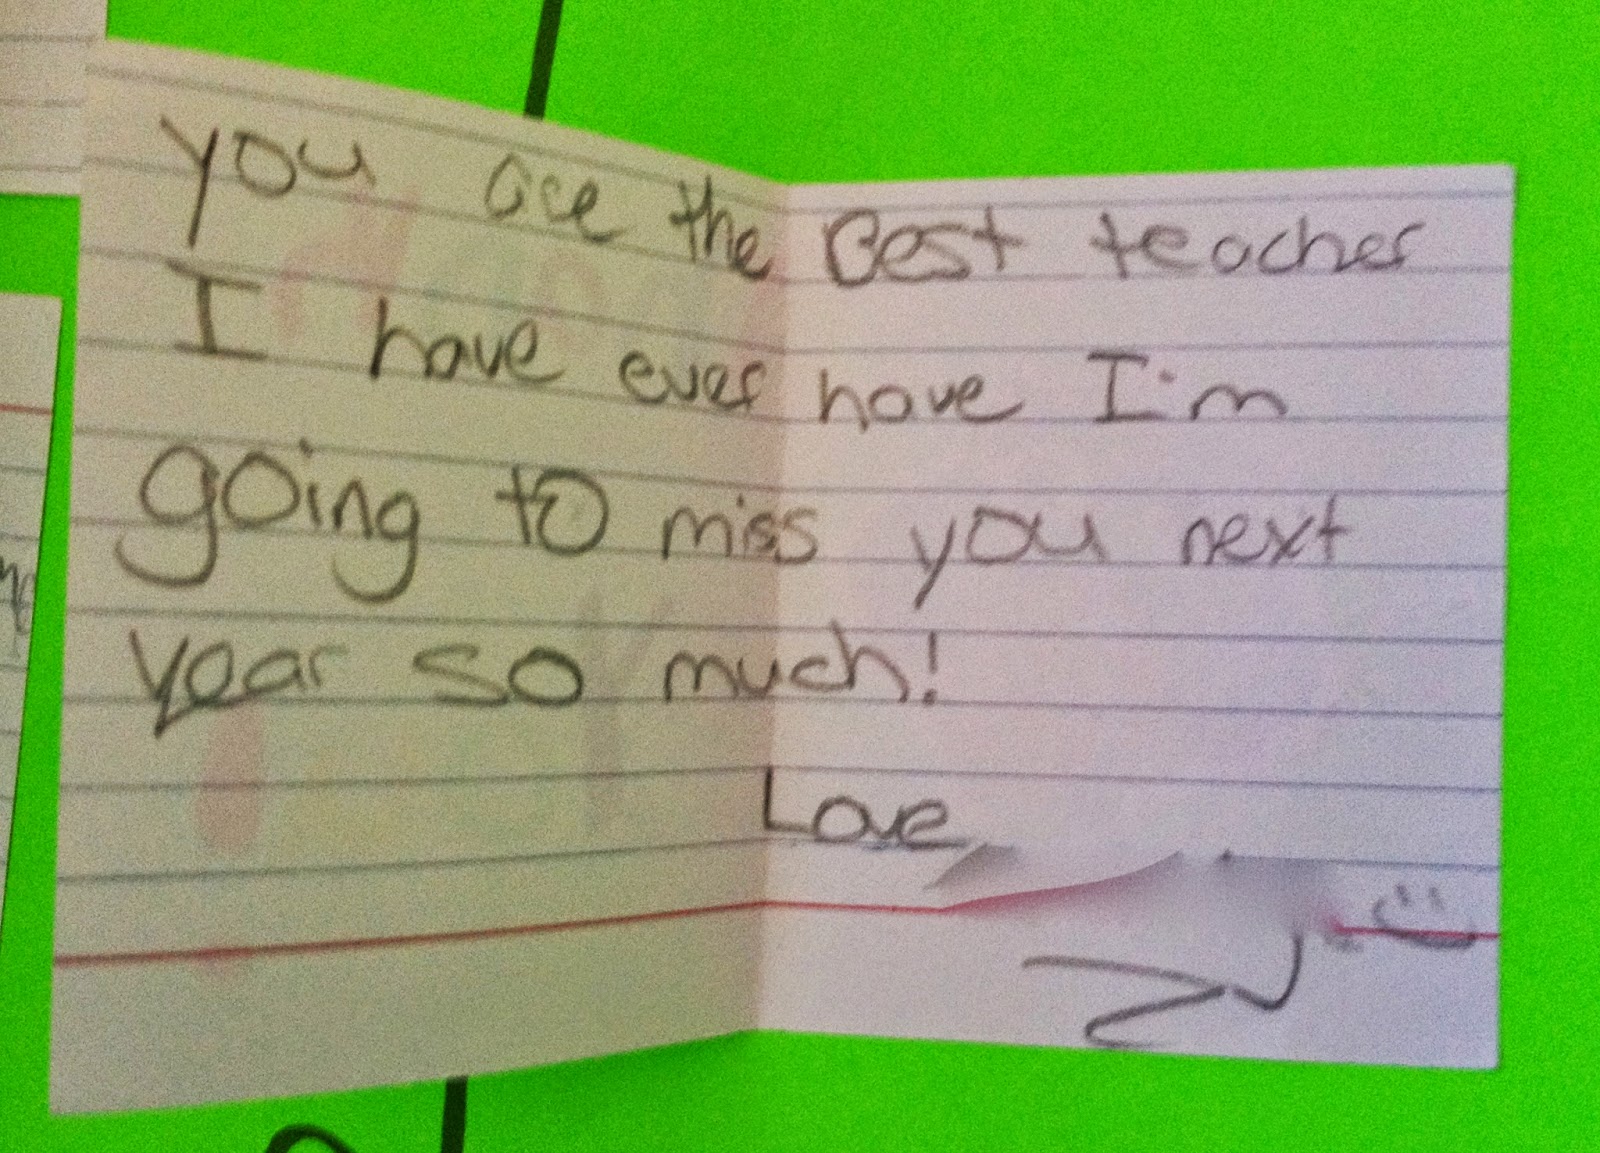 you are the Best teacher
I have ever have I'm
going to miss you next
year so much!
Love